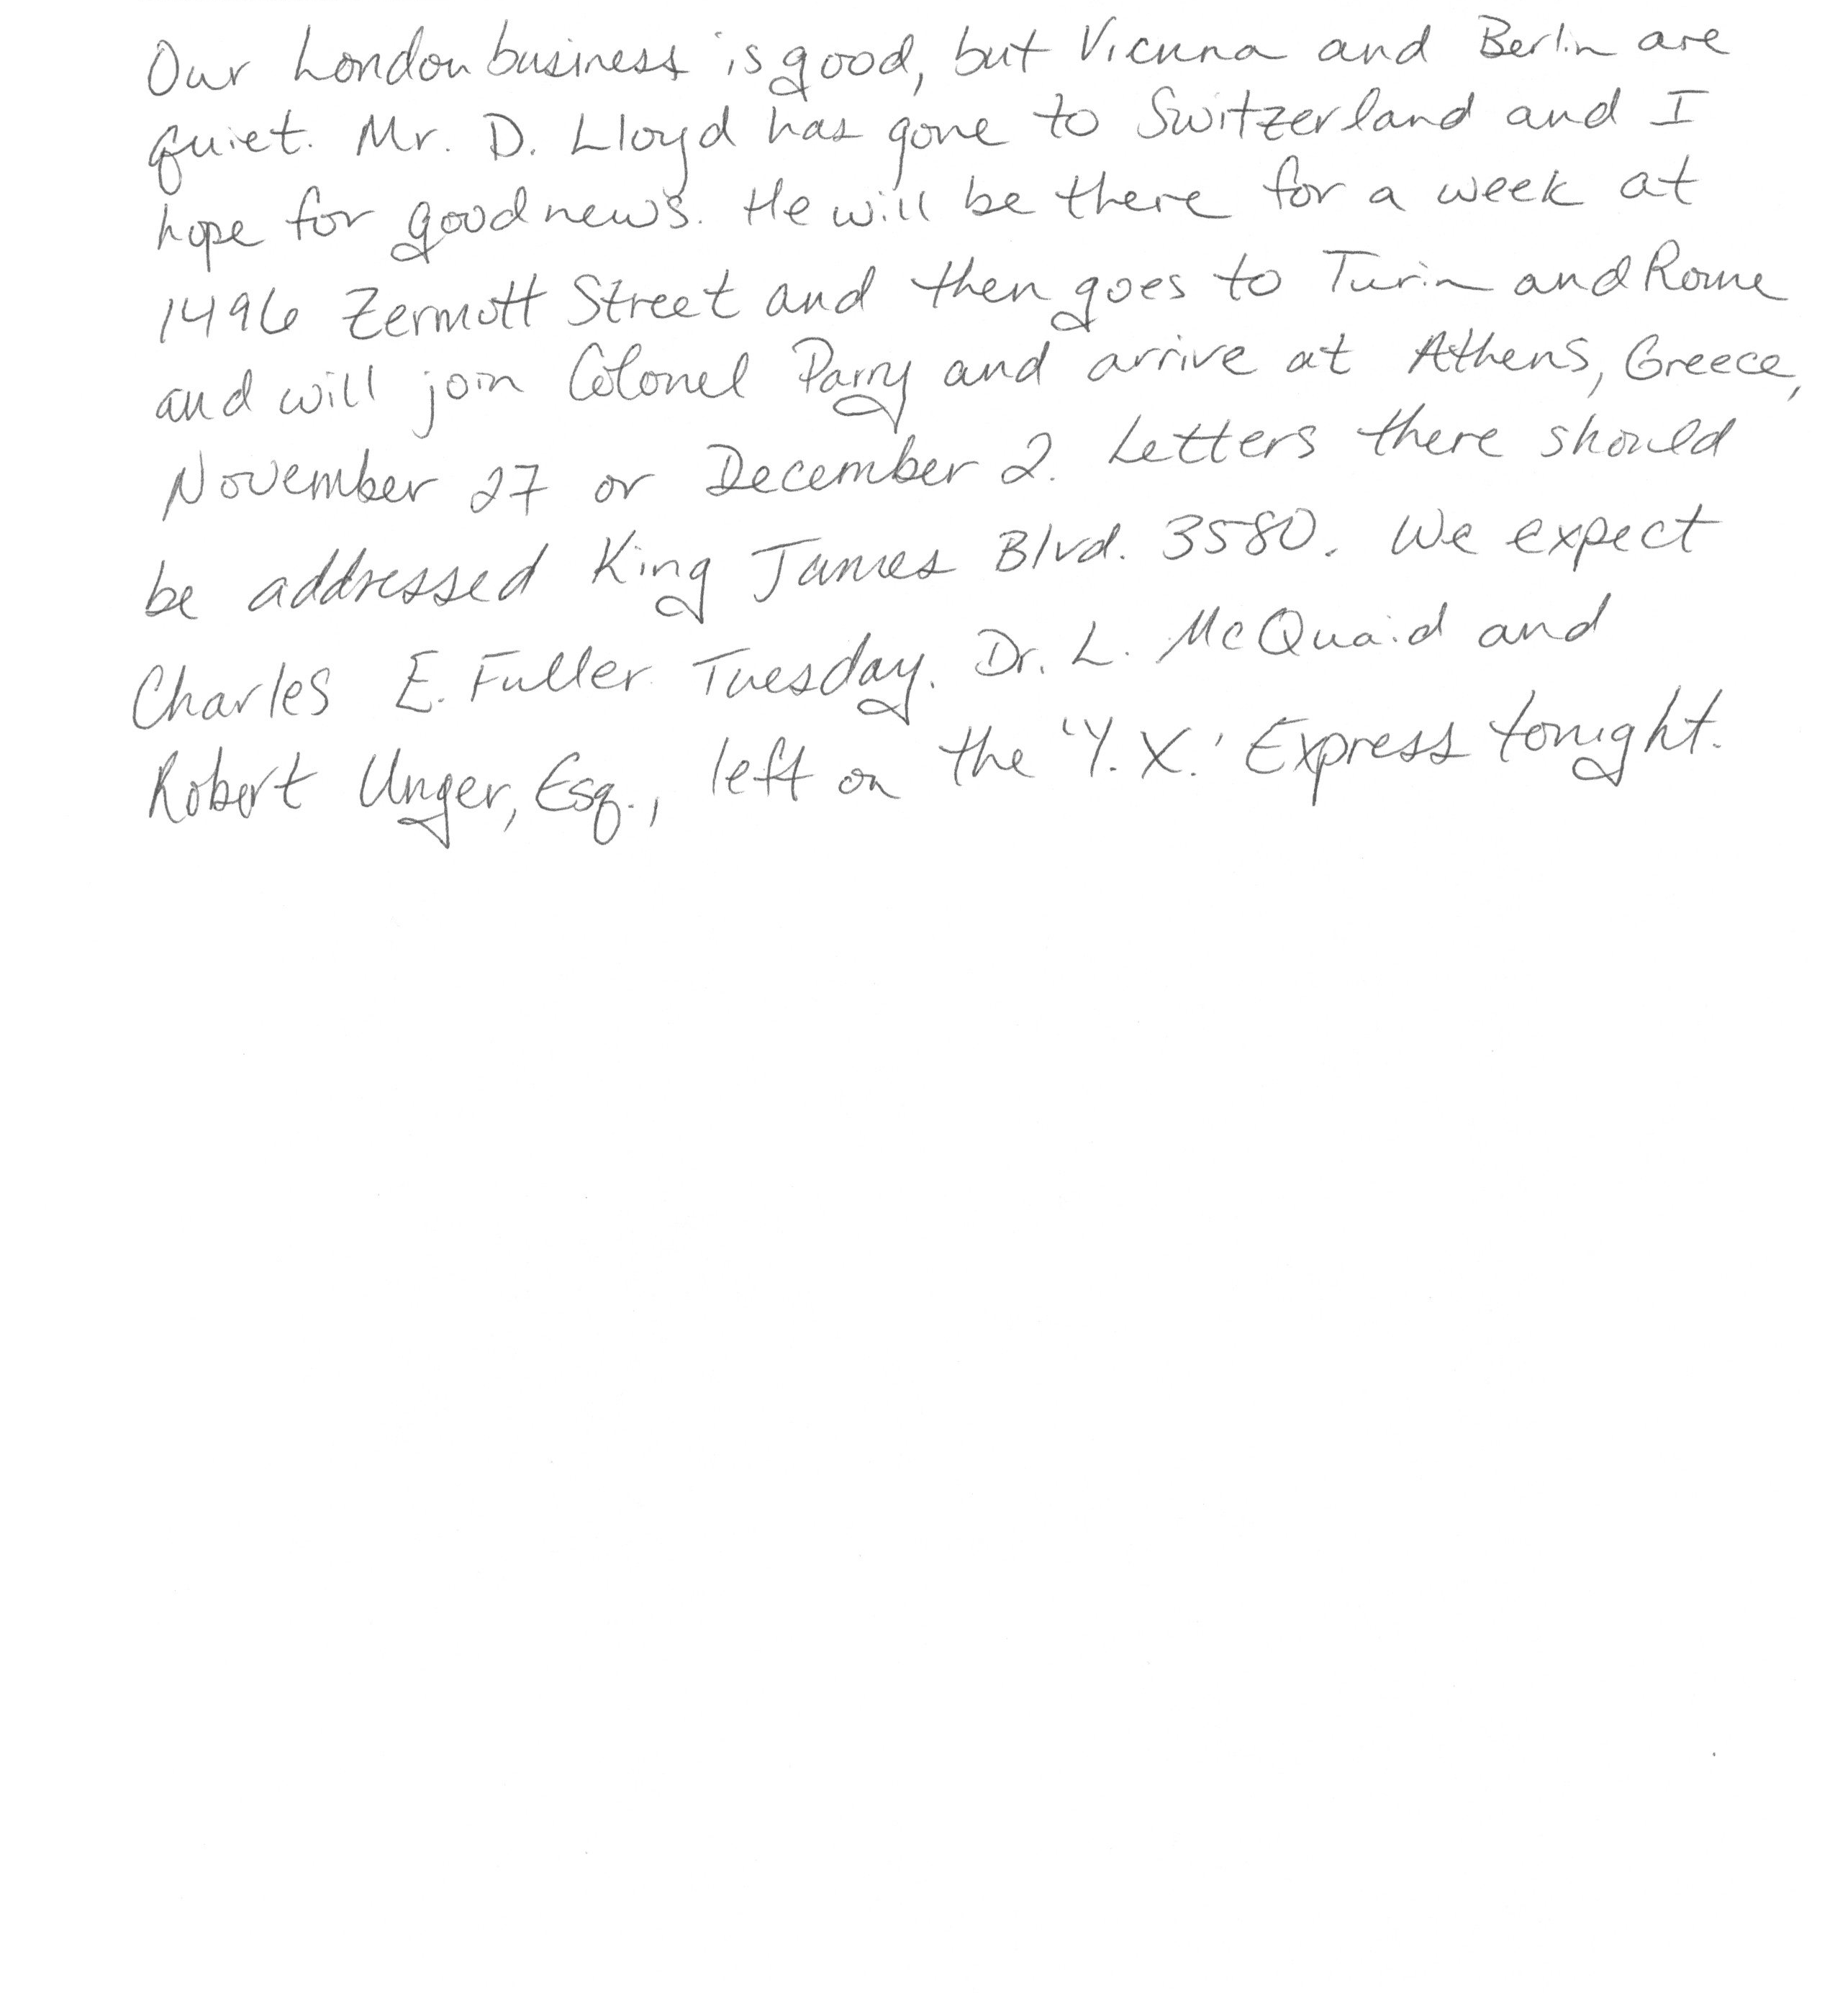 Our London business is good, but Vienna and Berlin are
quiet. Mr. D. Lloyd has gone to Switzerland and I
hope for good news. He will be there for a week at
1496 Zermott Street and then goes to Turin and Rome
and will join Colonel Parry and arrive at Athens, Greece,
November 27 or December 2. Letters there should
be addressed King James Blvd. 3580. We expect
Charles E. Fuller Tuesday. Dr. L. McQuaid and
Robert Unger, Esq., left on the 'Y. X.' Express tonight.